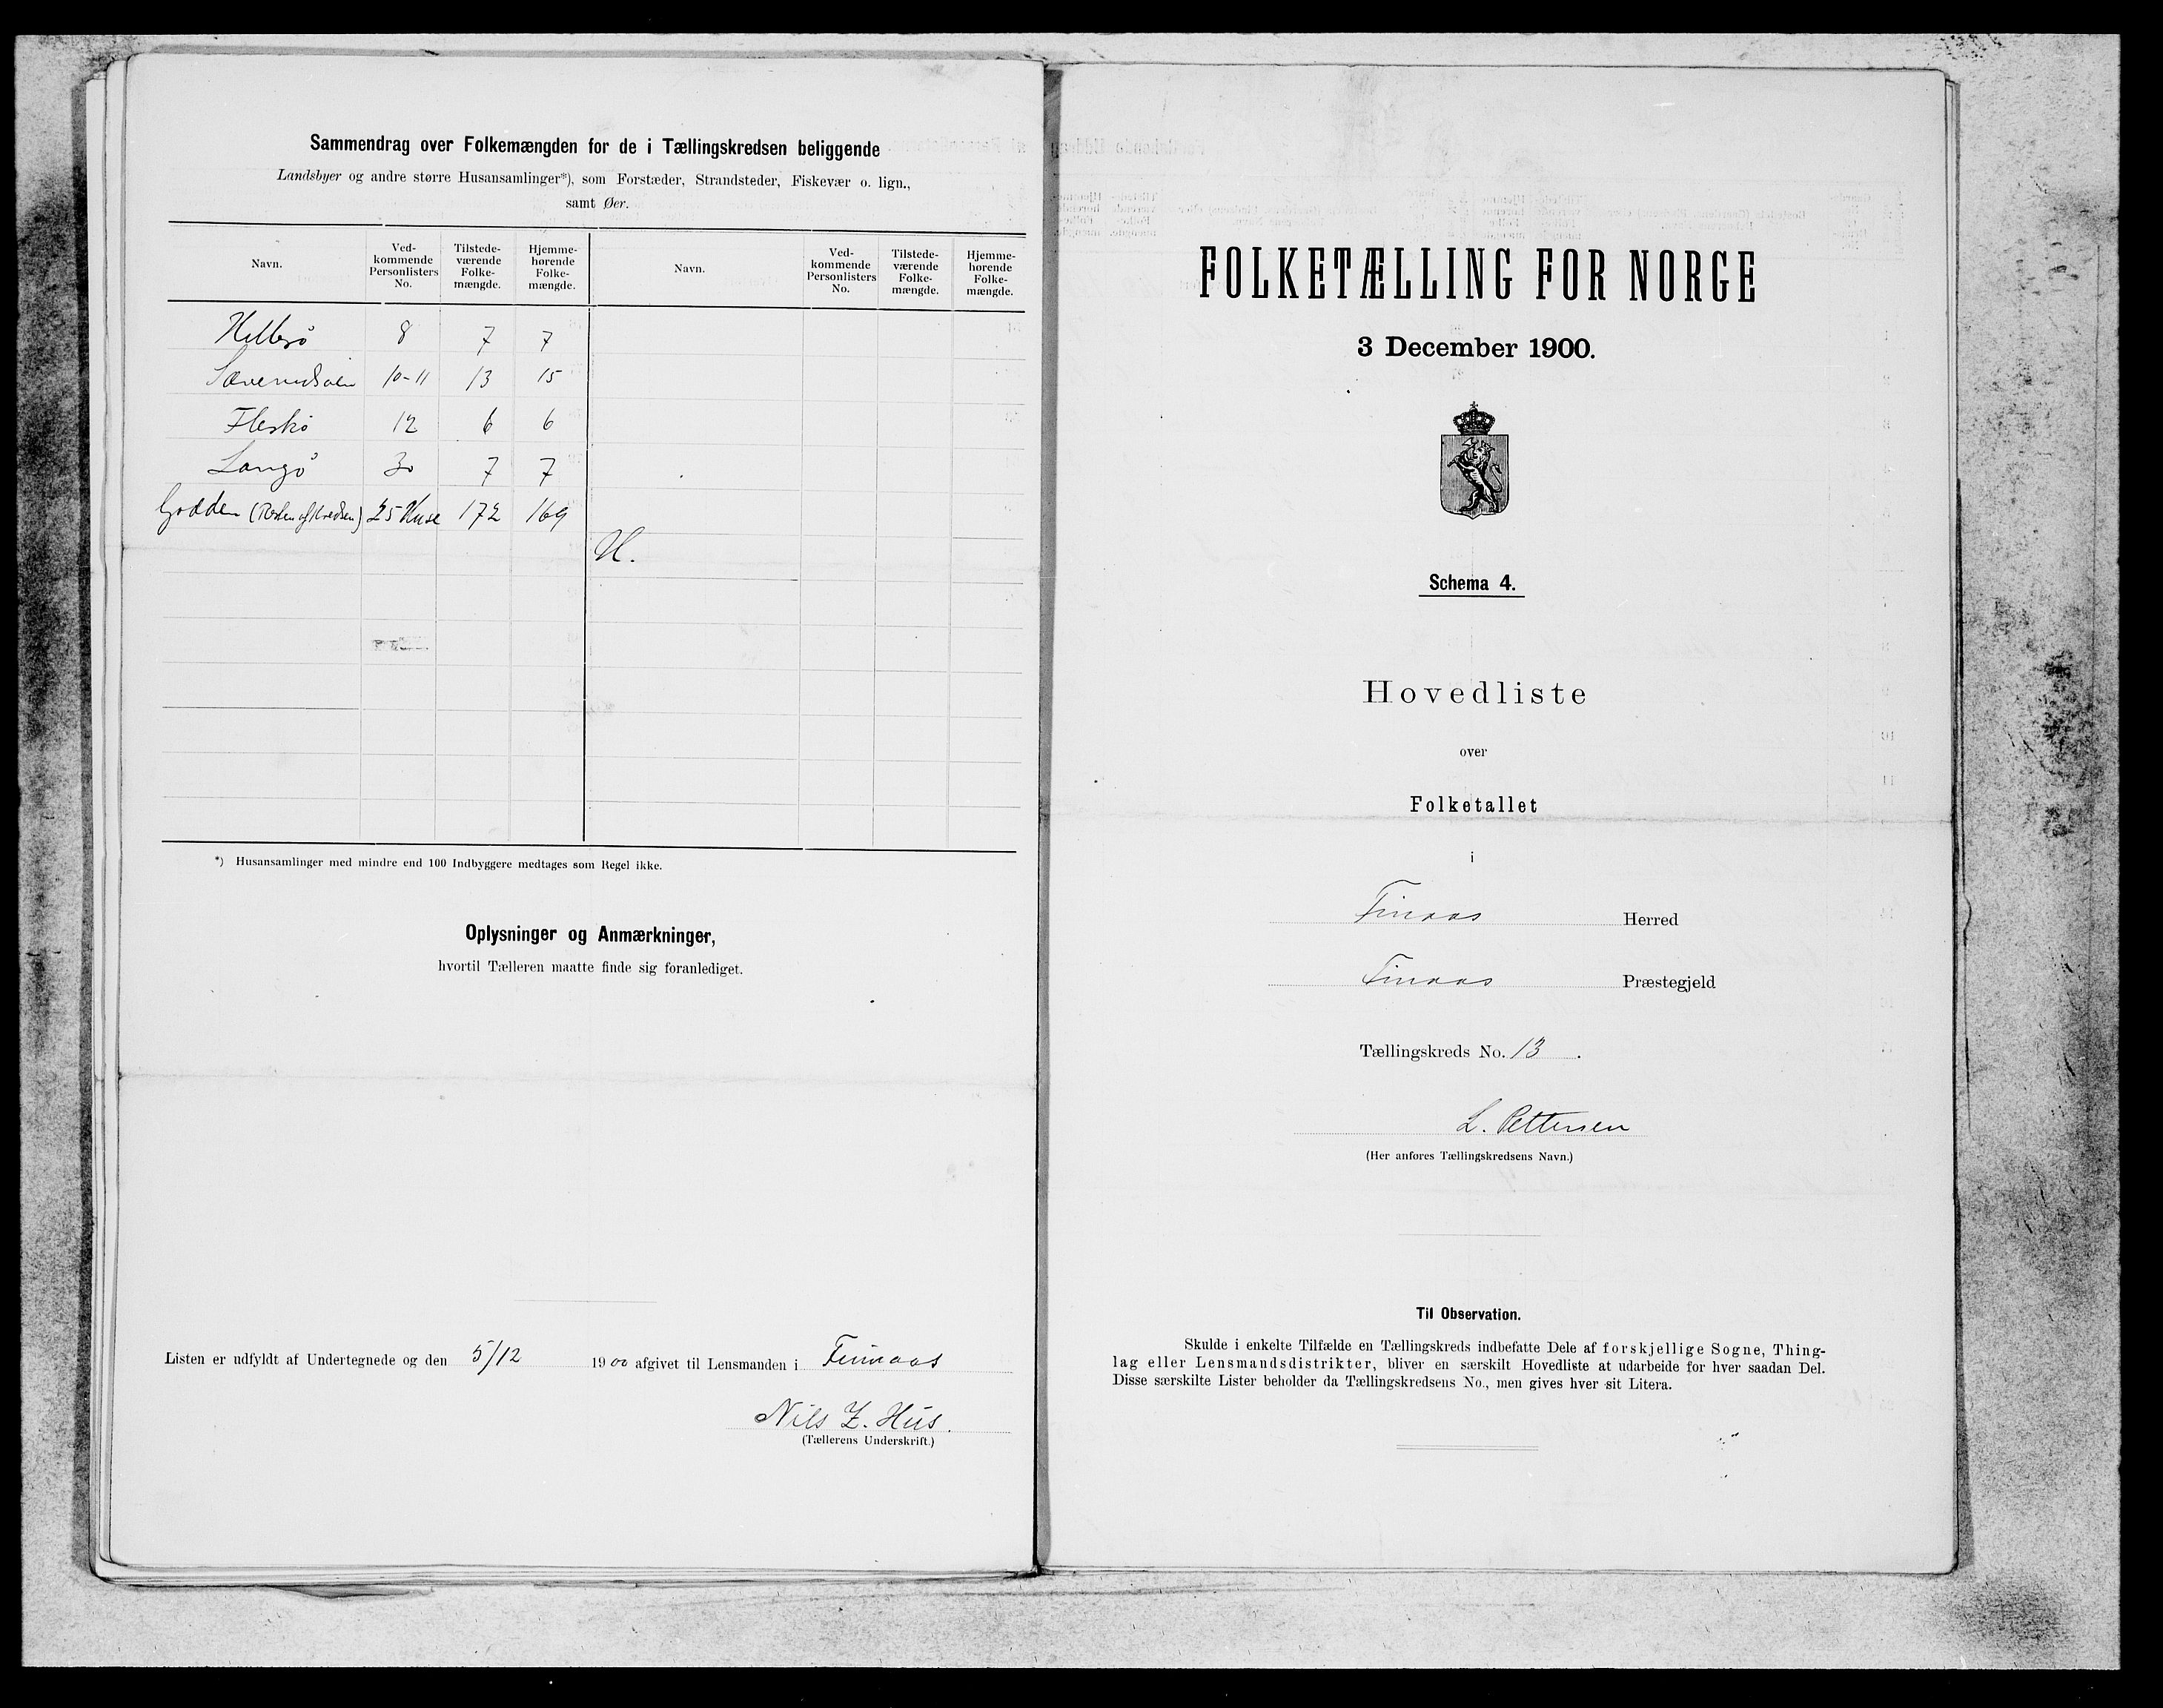 Sammendrag over Folkemængden for de i Tællingskredsen beliggende
Landsbyer og andre større Husansamlinger*), som Forstæder, Strandsteder, Fiskevær o. lign.,
samt Øer.
Navn. Ved-kommende Personlisters No. Tilstede-værende Folke-mængde. Hjemme-hørende Folke-mængde. Navn. Ved-kommende Personlisters No. Tilstede-værende Folke-mængde. Hjemme-hørende Folke-mængde.
Hillesø 8 7 7
10-11 13 15
Fleskø 12 6 6
Langø 30 7 7
Godden (Resten af Kredsen) 25 Huse 172 169
H.
*) Husansamlinger med mindre end 100 Indbyggere medtages som Regel ikke.
Oplysninger og Anmærkninger,
hvortil Tælleren maatte finde sig foranlediget.
Listen er udfyldt af Undertegnede og den 5/12 1900 afgivet til Lensmanden i Finnaas
Nils Z. Hus.
(Tællerens Underskrift.)
FOLKETÆLLING FOR NORGE
3 December 1900.
Schema 4.
Hovedliste
over
Folketallet
i
Finaas Herred
Finaas Præstegjeld
Tællingskreds No. 13.
L. Pettersen
(Her anføres Tællingskredsens Navn.)
Til Observation.
Skulde i enkelte Tilfælde en Tællingskreds indbefatte Dele af forskjellige Sogne, Thing-
lag eller Lensmandsdistrikter, bliver en særskilt Hovedliste at udarbeide for hver saadan Del.
Disse særskilte Lister beholder da Tællingskredsens No., men gives hver sit Litera.